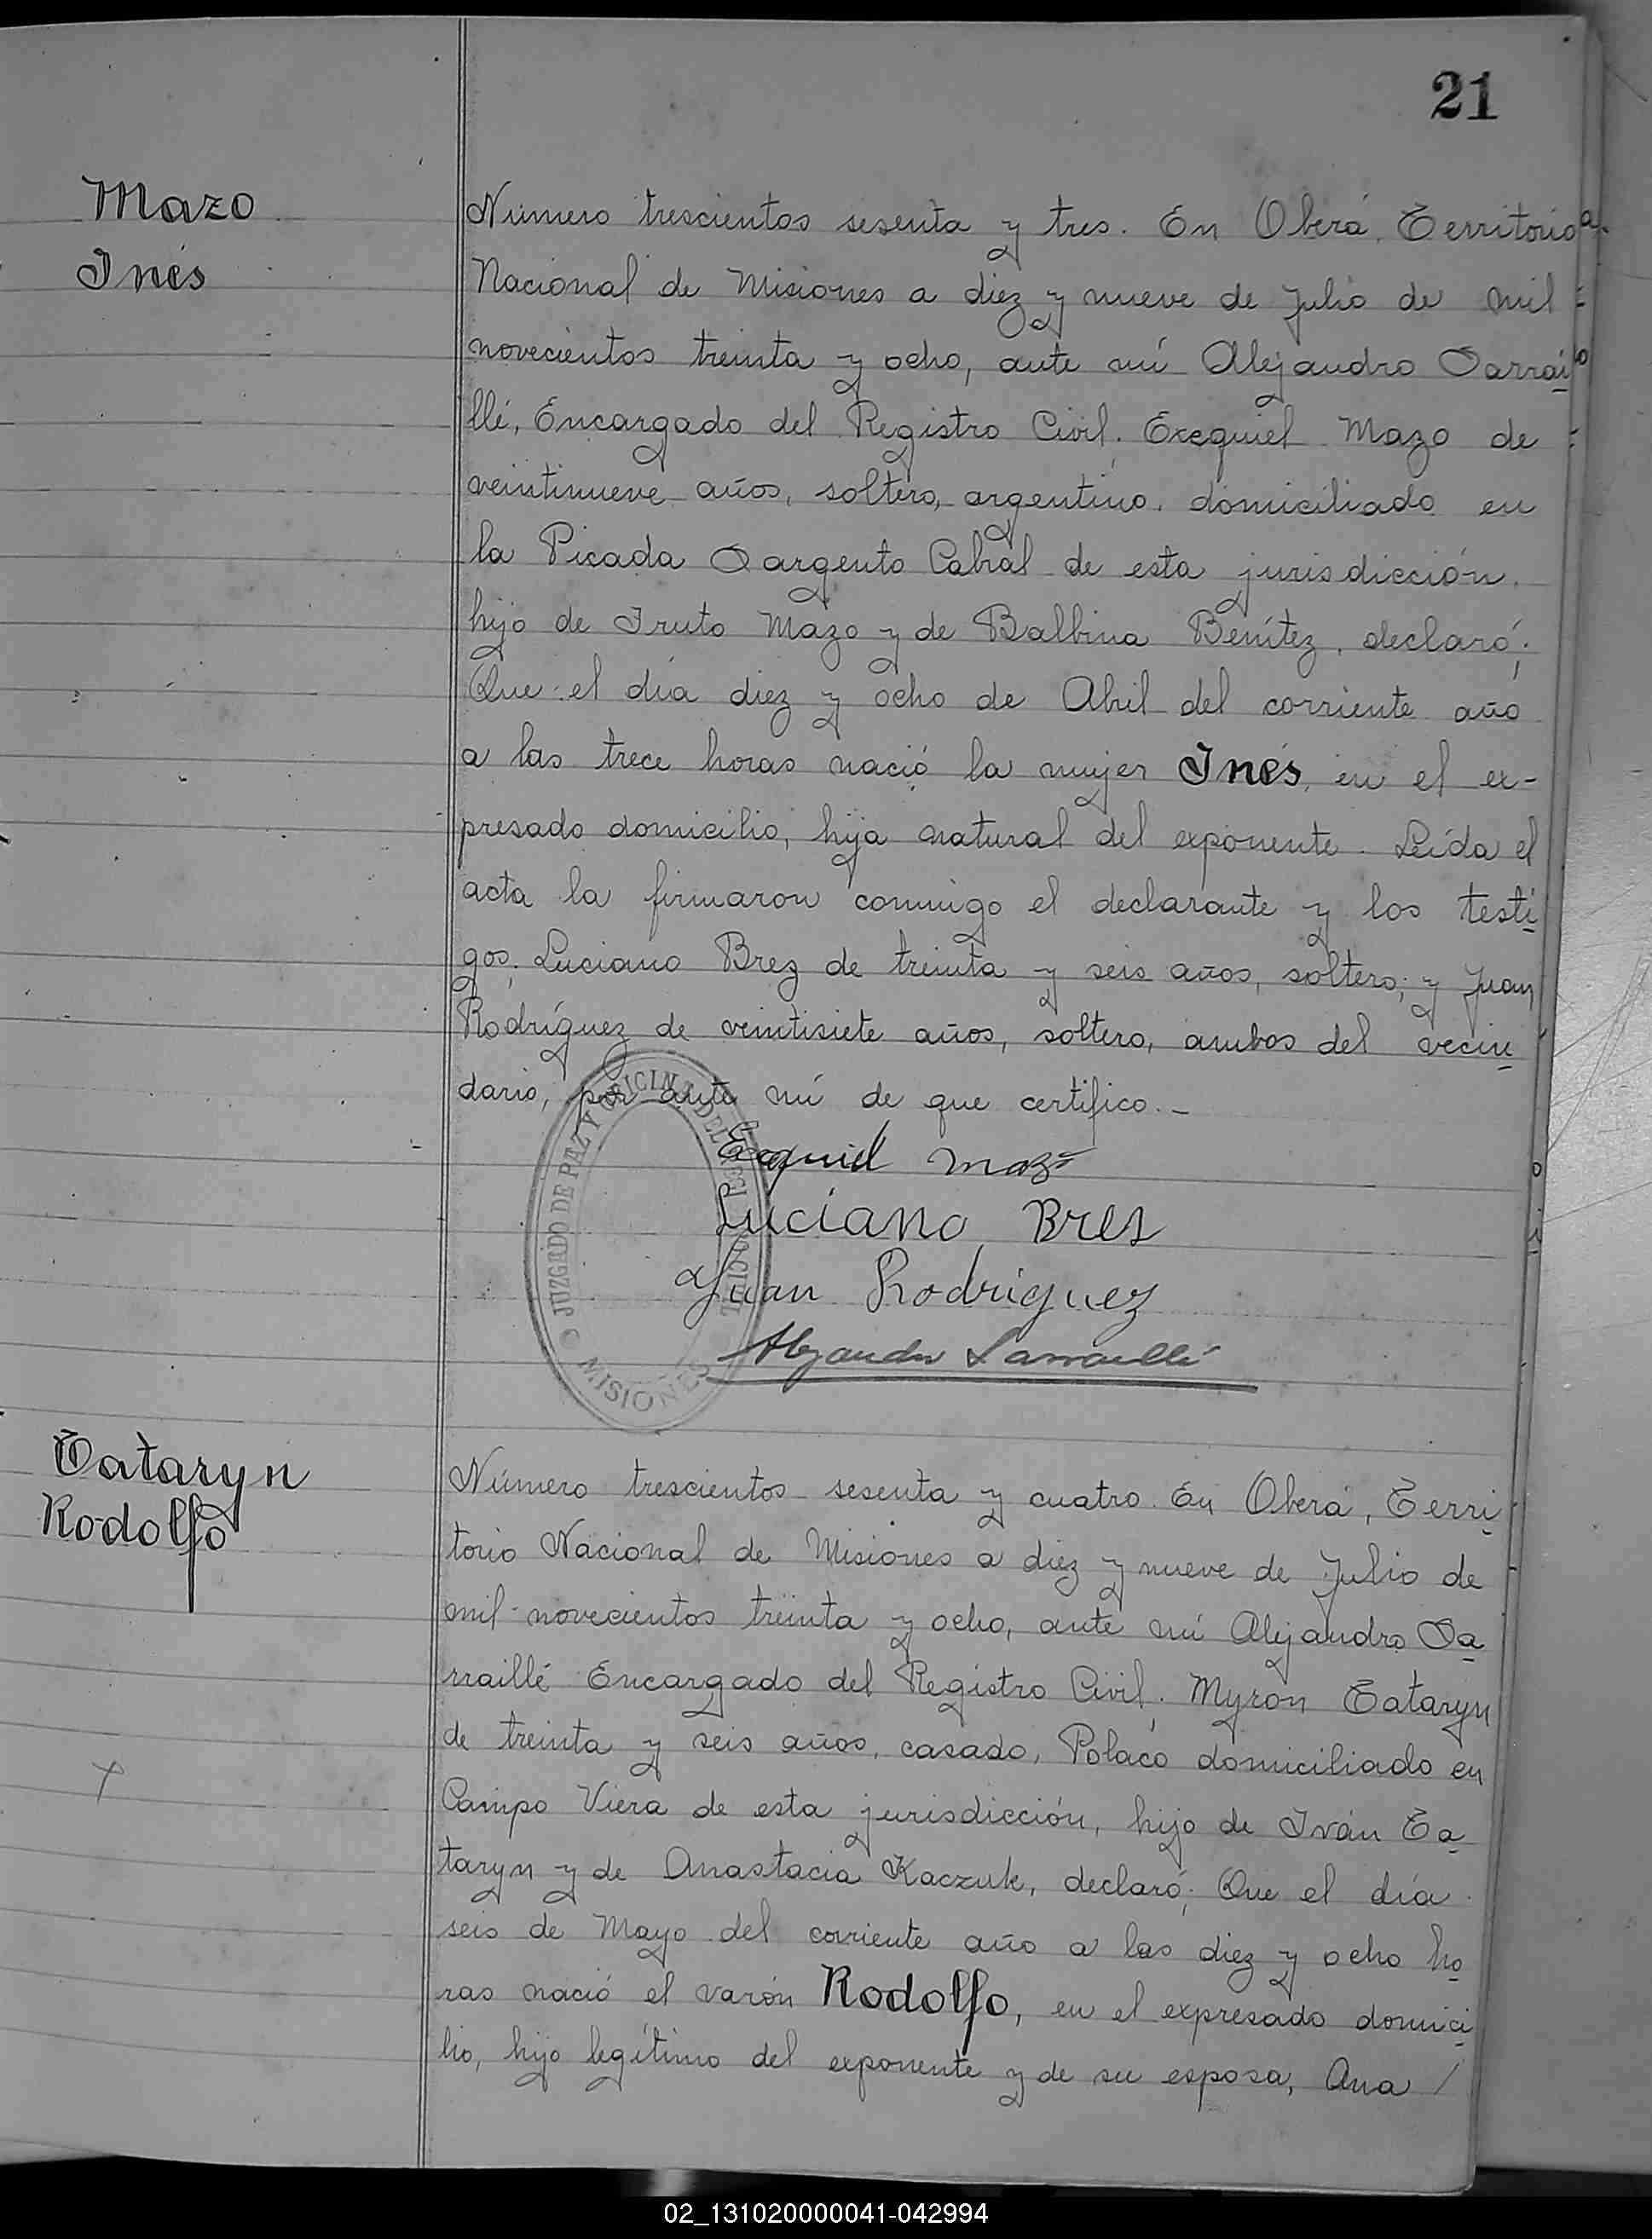 21
Mazo
Inés
Número trescientos sesenta y tres. En Oberá, Territorio
Nacional de Misiones a diez y nueve de Julio de mil
novecientos treinta y ocho, ante mí Alejandro Sarrai
llé, Encargado del Registro Civil. Exequiel Mazo de
veintinueve años, soltero, argentino, domiciliado en
la Picada Sargento Cabral de esta jurisdicción,
hijo de Fruto Mazo y de Balbina Benítez, declaró;
Que el día diez y ocho de Abril del corriente año
a las trece horas nació la mujer Inés, en el ex-
presado domicilio, hija natural del exponente. Leída el
acta la firmaron conmigo el declarante y los testi
gos; Luciano Brez de treinta y seis años, soltero; y Juan
Rodríguez de veintisiete años, soltero, ambos del vecin
dario, por ante mí de que certifico.-
Exequiel Mazo
Luciano Bres
Juan Rodriguez
Alejandro Sarraillé
JUZGADO DE PAZ Y OFICINA DEL REGISTRO CIVIL
MISIONES
Tataryn
Rodolfo
Número trescientos sesenta y cuatro. En Oberá, Terri
torio Nacional de Misiones a diez y nueve de Julio de
mil novecientos treinta y ocho, ante mí Alejandro Sa
rraillé Encargado del Registro Civil. Myron Tataryn
de treinta y seis años, casado, Polaco domiciliado en
Campo Viera de esta jurisdicción, hijo de Iván Ta
taryn y de Anastacia Kaczuk, declaró; Que el día
seis de Mayo del corriente año a las diez y ocho ho
ras nació el varón Rodolfo, en el expresado domici
lio, hijo legítimo del exponente y de su esposa, Ana /
02_131020000041-042994